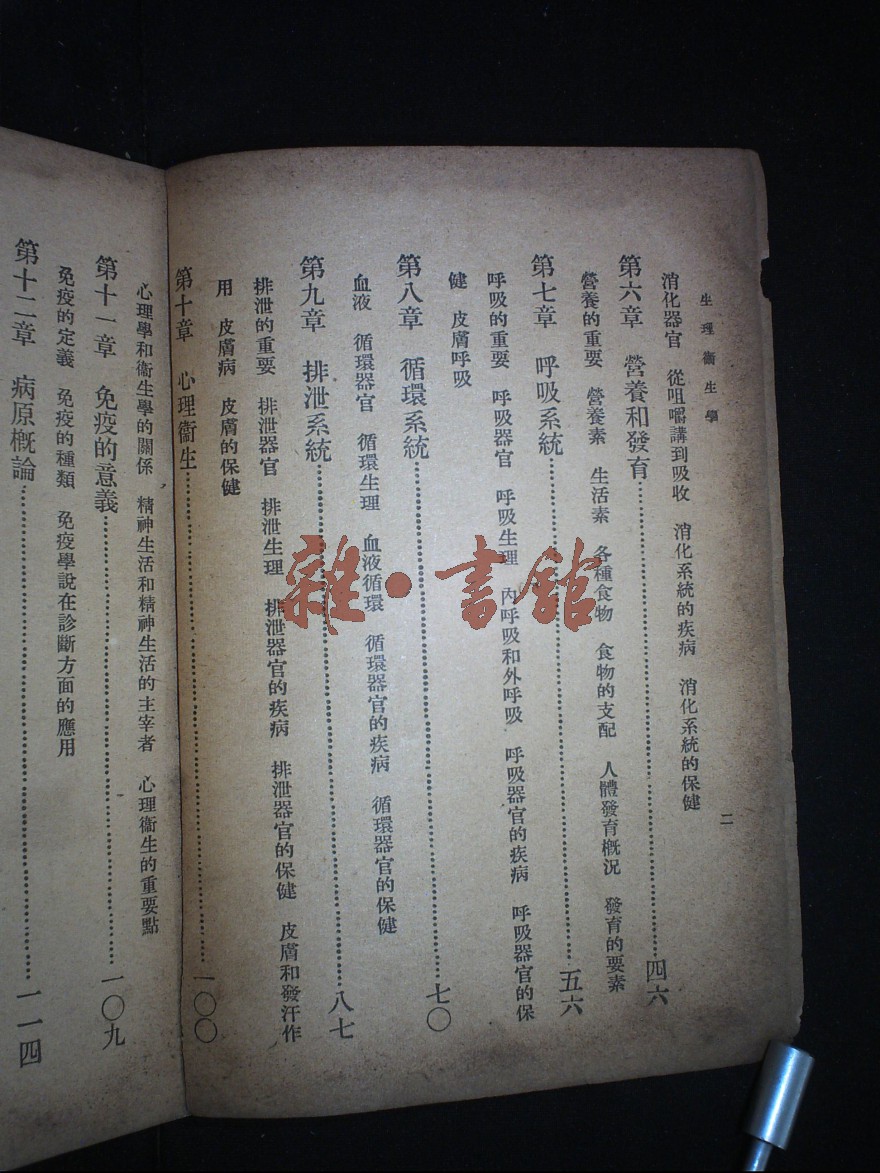 生理衞生學
二
消化器官　從咀嚼講到吸收　消化系統的疾病　消化系統的保健
第六章　營養和發育……四六
營養的重要　營養素　生活素　各種食物　食物的支配　人體發育概況　發育的要素
第七章　呼吸系統……五六
呼吸的重要　呼吸器官　呼吸生理　內呼吸和外呼吸　呼吸器官的疾病　呼吸器官的保
健　皮膚呼吸
第八章　循環系統……七〇
血液　循環器官　循環生理　血液循環　循環器官的疾病　循環器官的保健
第九章　排泄系統……八七
排泄的重要　排泄器官　排泄生理　排泄器官的疾病　排泄器官的保健　皮膚和發汗作
用　皮膚病　皮膚的保健
第十章　心理衞生……一〇〇
心理學和衞生學的關係　精神生活和精神生活的主宰者　心理衞生的重要點
第十一章　免疫的意義……一〇九
免疫的定義　免疫的種類　免疫學說在診斷方面的應用
第十二章　病原概論……一一四
雜·書館